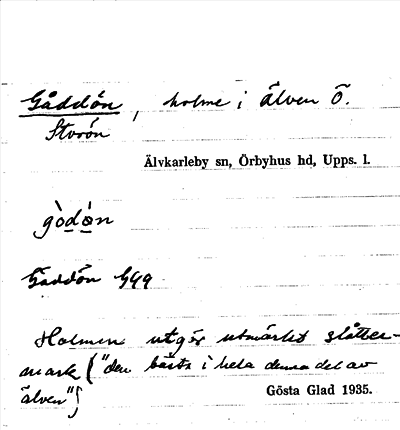 Gåddön, holme i älven Ö.
Storön
Älvkarleby sn, Örbyhus hd, Upps. l.
gòdön
Gäddön
Holmen utgör utmärkt slåtter-
mark ("den bästa i hela denna del av
älven")
Gösta Glad 1935.